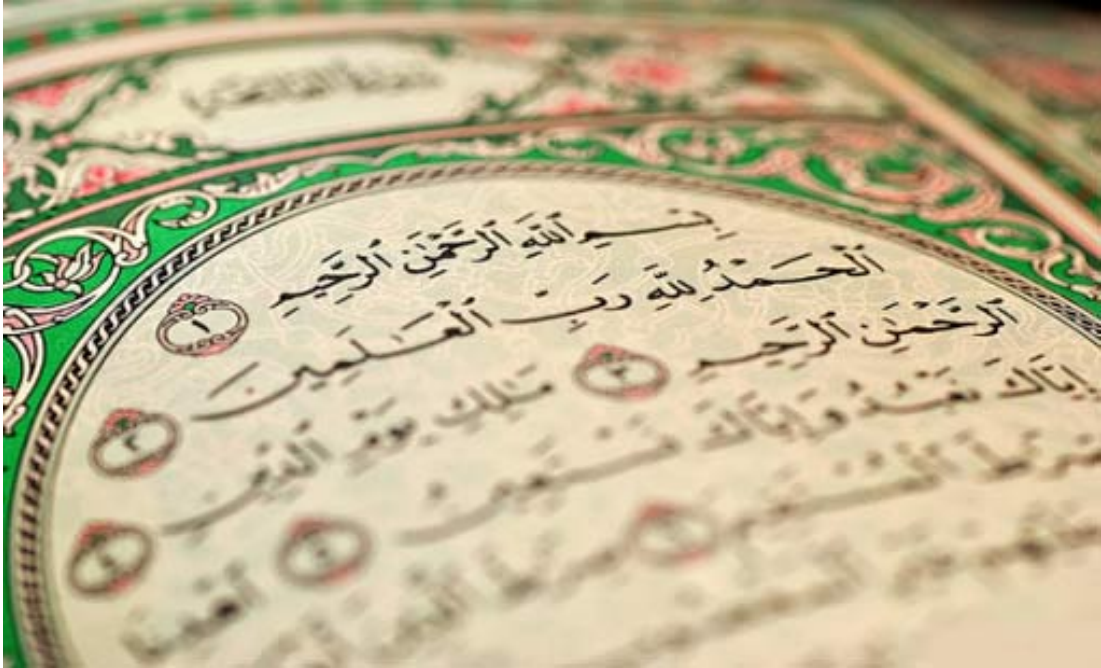 سورة الفاتحة
بِسْمِ ٱللَّهِ ٱلرَّحْمَٰنِ ٱلرَّحِيمِ ١
ٱلْحَمْدُ لِلَّهِ رَبِّ ٱلْعَٰلَمِينَ ٢
ٱلرَّحْمَٰنِ ٱلرَّحِيمِ ٣ مَٰلِكِ يَوْمِ ٱلدِّينِ ٤
إِيَّاكَ نَعْبُدُ وَإِيَّاكَ نَسْتَعِينُ ٥ ٱهْدِنَا
ٱلْمُسْتَقِيمَ ٦ صِرَٰطَ ٱلَّذِينَ